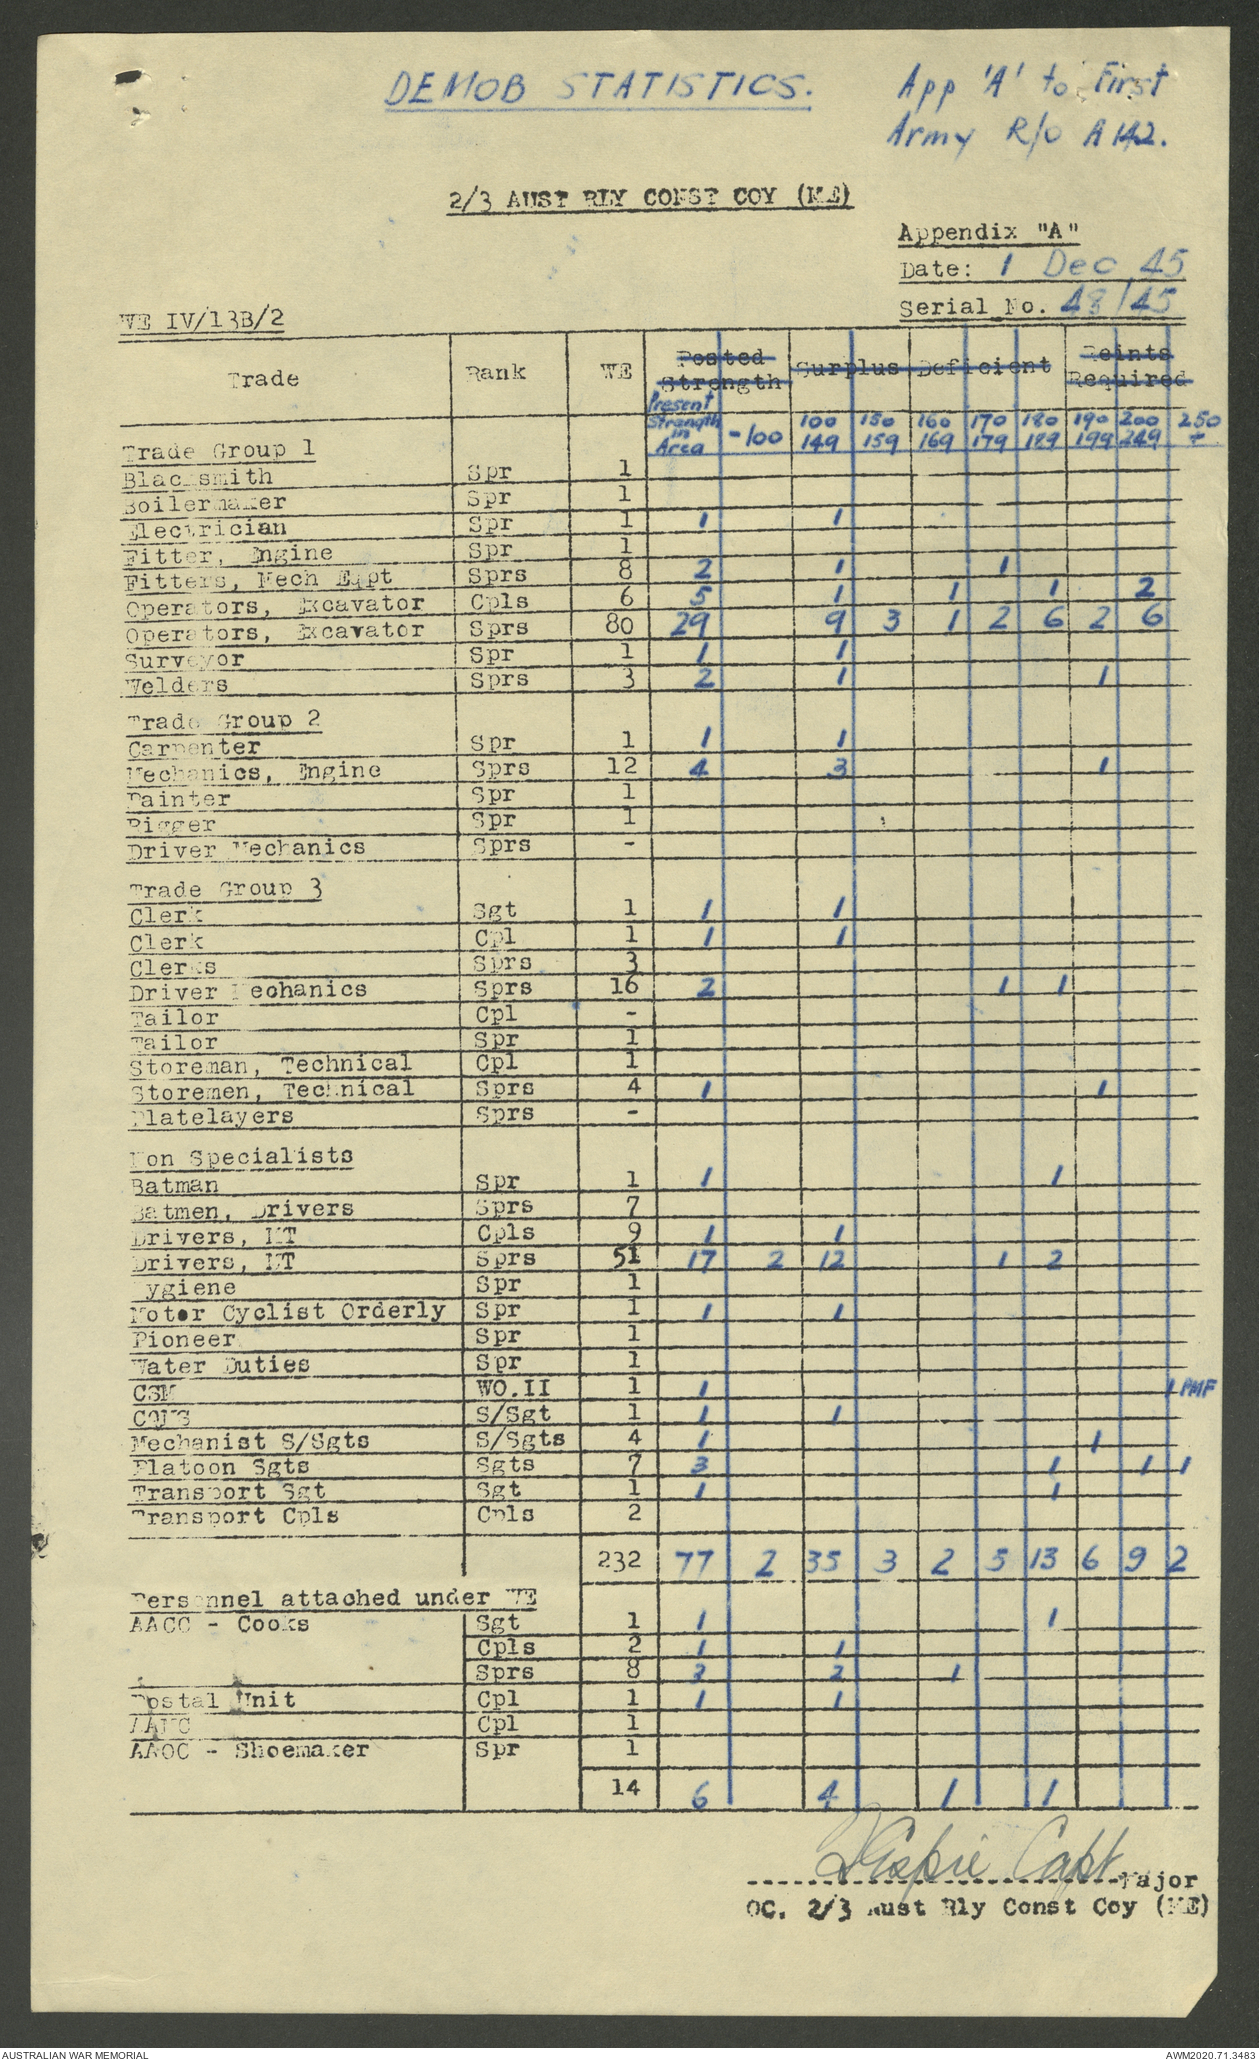 DEMOB STATISTICS.
App 'A' to First
Army R/o A 142.
2/3 AUST RLY CONST COY (ME)
Appendix "A"
Date: 1 Dec 45
Serial No. 48/45
WE IV/13B/2
Trade Rank WE Posted Strength Surplus Deficient Reints Required
Present Strength in Area -100 100 149 150 159 160 169 170 179 180 189 190 199 200 249 250 +
Trade Group 1
Blacksmith Spr 1
Boilermaker Spr 1
Electrician Spr 1 1 1
Fitter, Engine Spr 1
Fitters, Mech Eqpt Sprs 8 2 1 1
Operators, Excavator Cpls 6 5 1 1 1 2
Operators, Excavator Sprs 80 29 9 3 1 2 6 2 6
Surveyor Spr 1 1 1
Welders Sprs 3 2 1 1
Trade Group 2
Carpenter Spr 1 1 1
Mechanics, Engine Sprs 12 4 3 1
Painter Spr 1
Rigger Spr 1
Driver Mechanics Sprs -
Trade Group 3
Clerk Sgt 1 1 1
Clerk Cpl 1 1 1
Clerks Sprs 3
Driver Mechanics Sprs 16 2 1 1
Tailor Cpl -
Tailor Spr 1
Storeman, Technical Cpl 1
Storemen, Technical Sprs 4 1 1
Platelayers Sprs -
Non Specialists
Batman Spr 1 1 1
Batmen, Drivers Sprs 7
Drivers, MT Cpls 9 1 1
Drivers, MT Sprs 51 17 2 12 1 2
Hygiene Spr 1
Motor Cyclist Orderly Spr 1 1 1
Pioneer Spr 1
Water Duties Spr 1
CSM WO.II 1 1 1 PMF
CQMS S/Sgt 1 1 1
Mechanist S/Sgts S/Sgts 4 1 1
Platoon Sgts Sgts 7 3 1 1 1
Transport Sgt Sgt 1 1 1
Transport Cpls Cpls 2
232 77 2 35 3 2 5 13 6 9 2
Personnel attached under WE
AACC - Cooks Sgt 1 1 1
Cpls 2 1 1
Sprs 8 3 2 1
Postal Unit Cpl 1 1 1
AAMC Cpl 1
AAOC - Shoemaker Spr 1
14 6 4 1 1
Capt
Major
OC. 2/3 Aust Rly Const Coy (ME)
AUSTRALIAN WAR MEMORIAL
AWM2020.71.3483